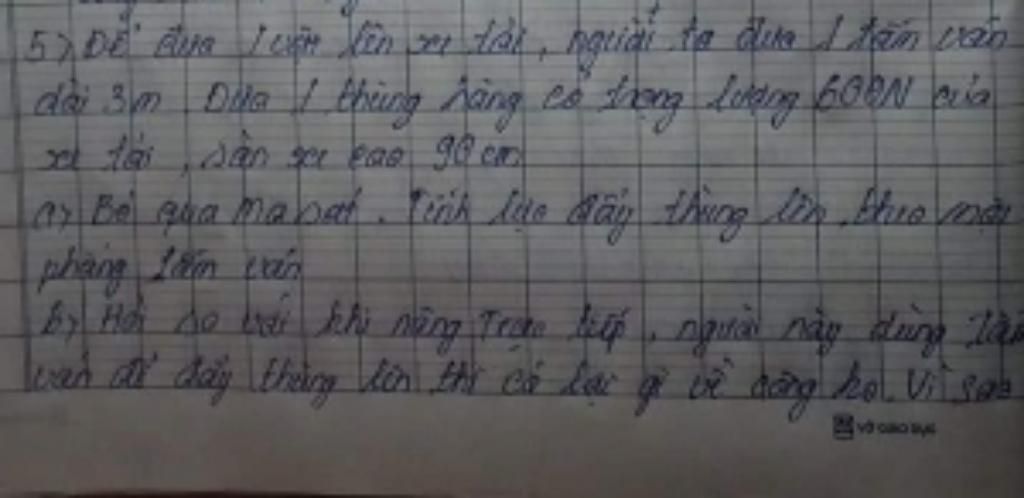 5) Để đưa 1 vật lên xe tải, người ta đưa 1 tấm ván
dài 3m. Đưa 1 thùng hàng có trọng lượng 600N của
xe tải, sàn xe cao 90 cm
a) Bỏ qua ma sát. Tính lực đẩy thùng lên theo mặt
phẳng tấm ván
b) Hỏi so với khi nâng trực tiếp, người này dùng tấm
ván để đẩy thùng lên thì có lợi gì về công ko. Vì sao
VỞ GIÁO DỤC